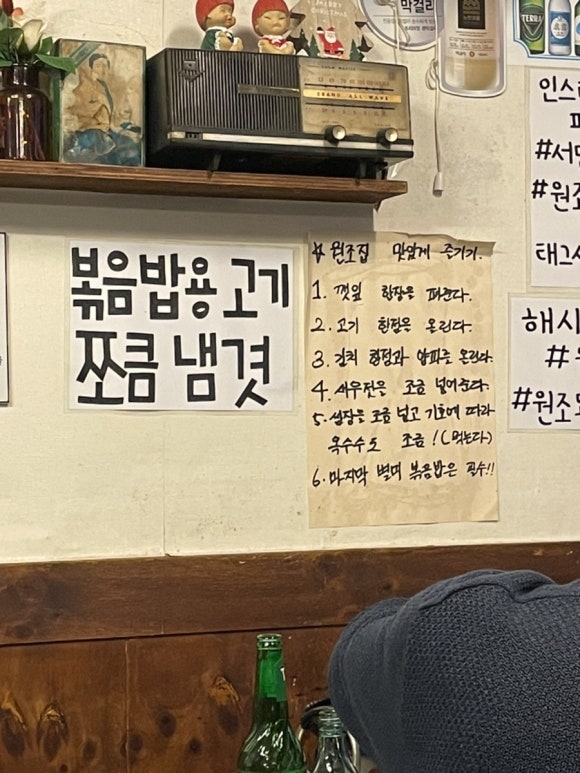 막걸리
MERRY
GRAND ALL WAVE
TERRA
볶음밥용 고기
쪼큼 냄겻
# 원조집 맛있게 즐기기.
1. 깻잎 한장을 펴준다.
2. 고기 한점은 올린다.
3. 김치 한점과 양파를 올린다.
4. 새우젓은 조금 넣어준다.
5. 쌈장은 조금 넣고 기호에 따라
옥수수도 조금! (먹는다)
6. 마지막 별미 볶음밥은 필수!!
인스
#서면
#원조
태그
해시
#
#원조